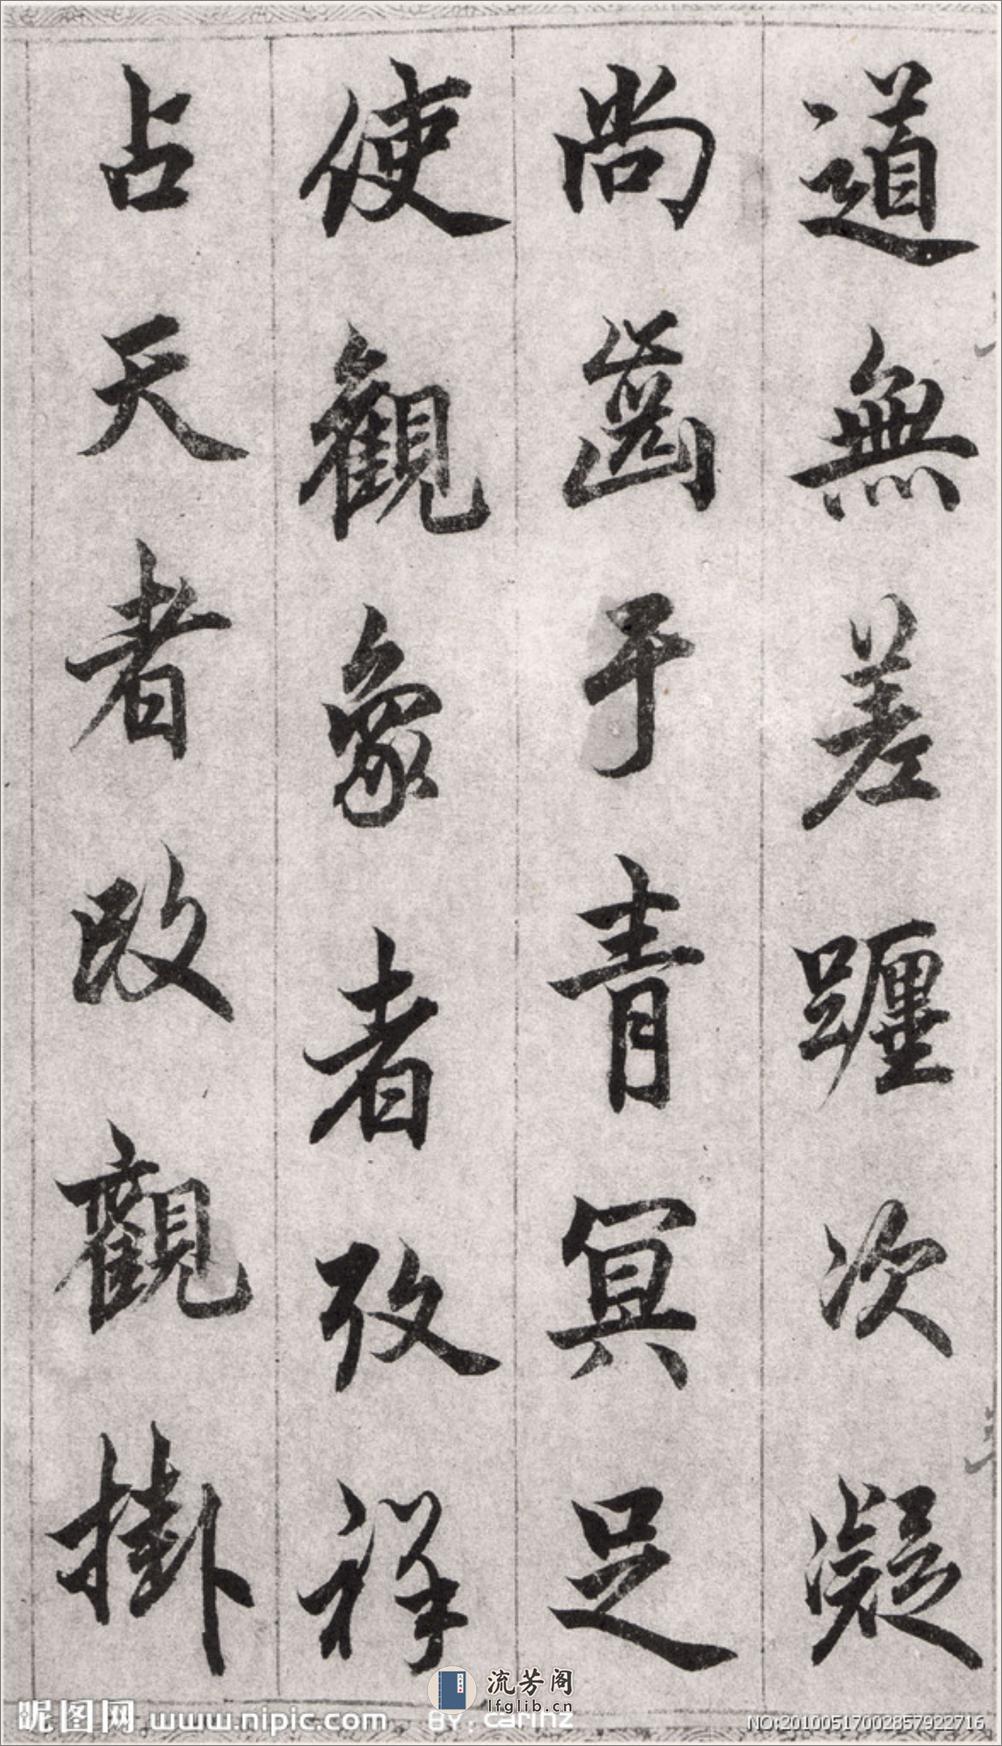 道無差躔次凝
尚齒于青冥足
使觀象者攷祥
占天者改觀掛
流芳阁
lfglib.cn
昵图网 www.nipic.com BY: carinz
NO:20100517002857922716